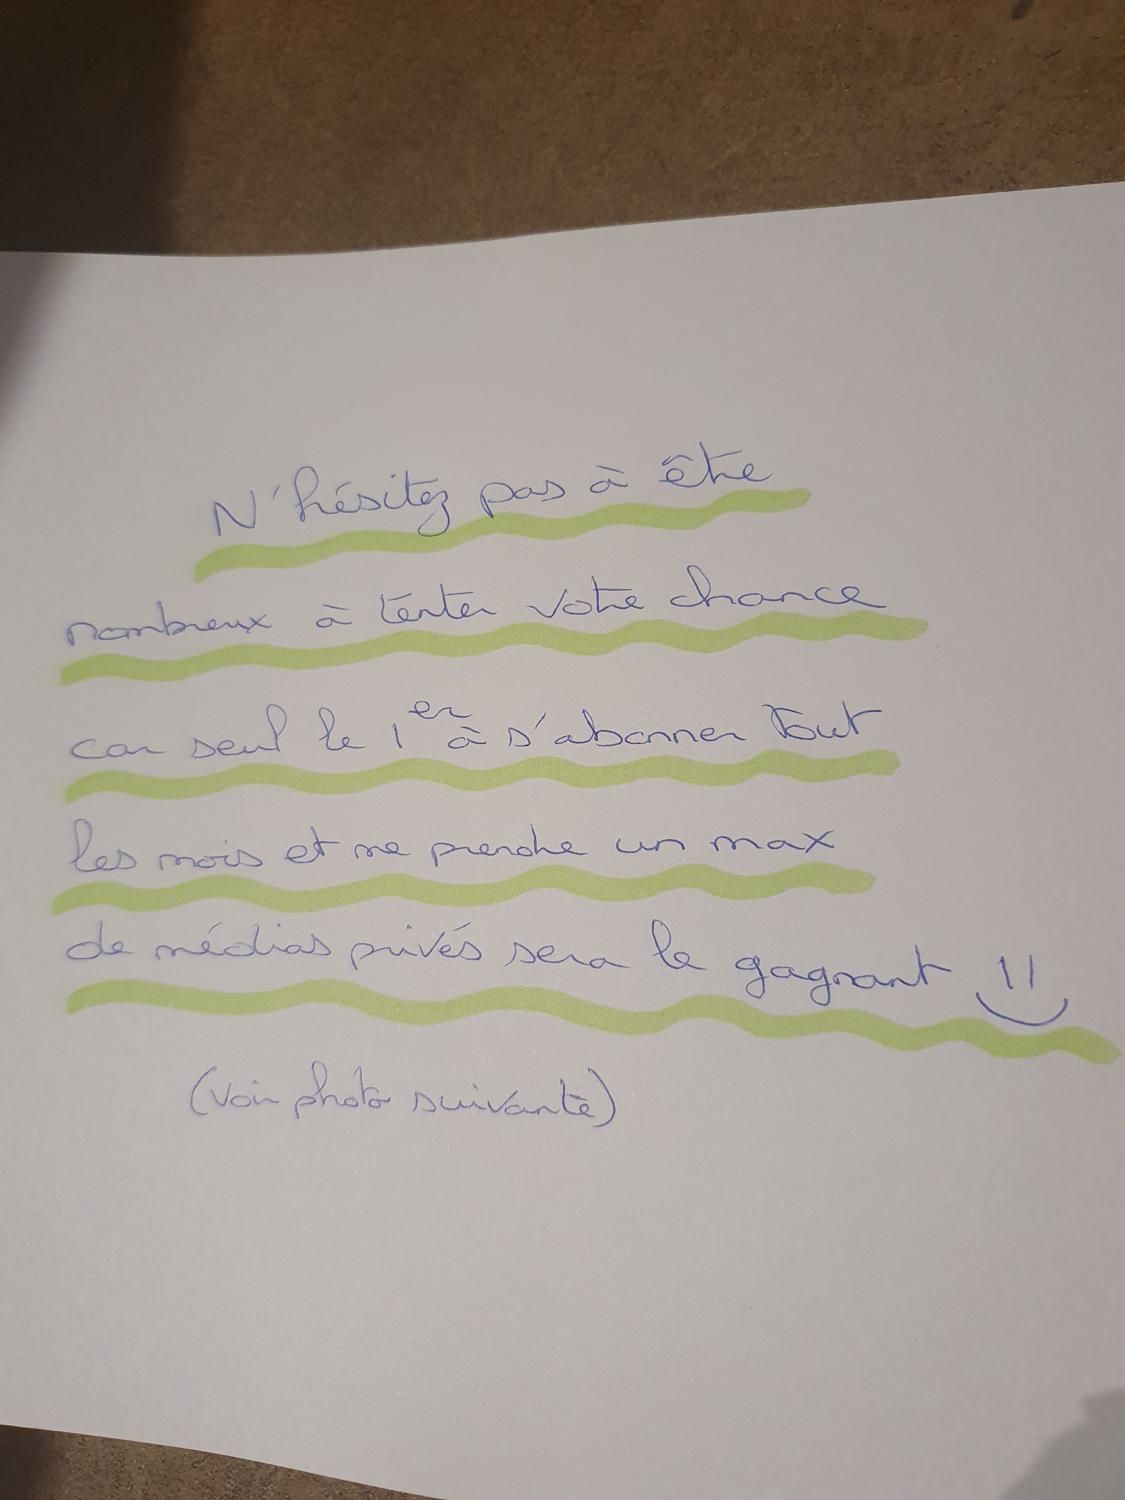 N'hésitez pas à être
nombreux à tenter votre chance
car seul le 1er à s'abonner Tout
les mois et me prendre un max
de médias privés sera le gagnant
(voir photo suivante)